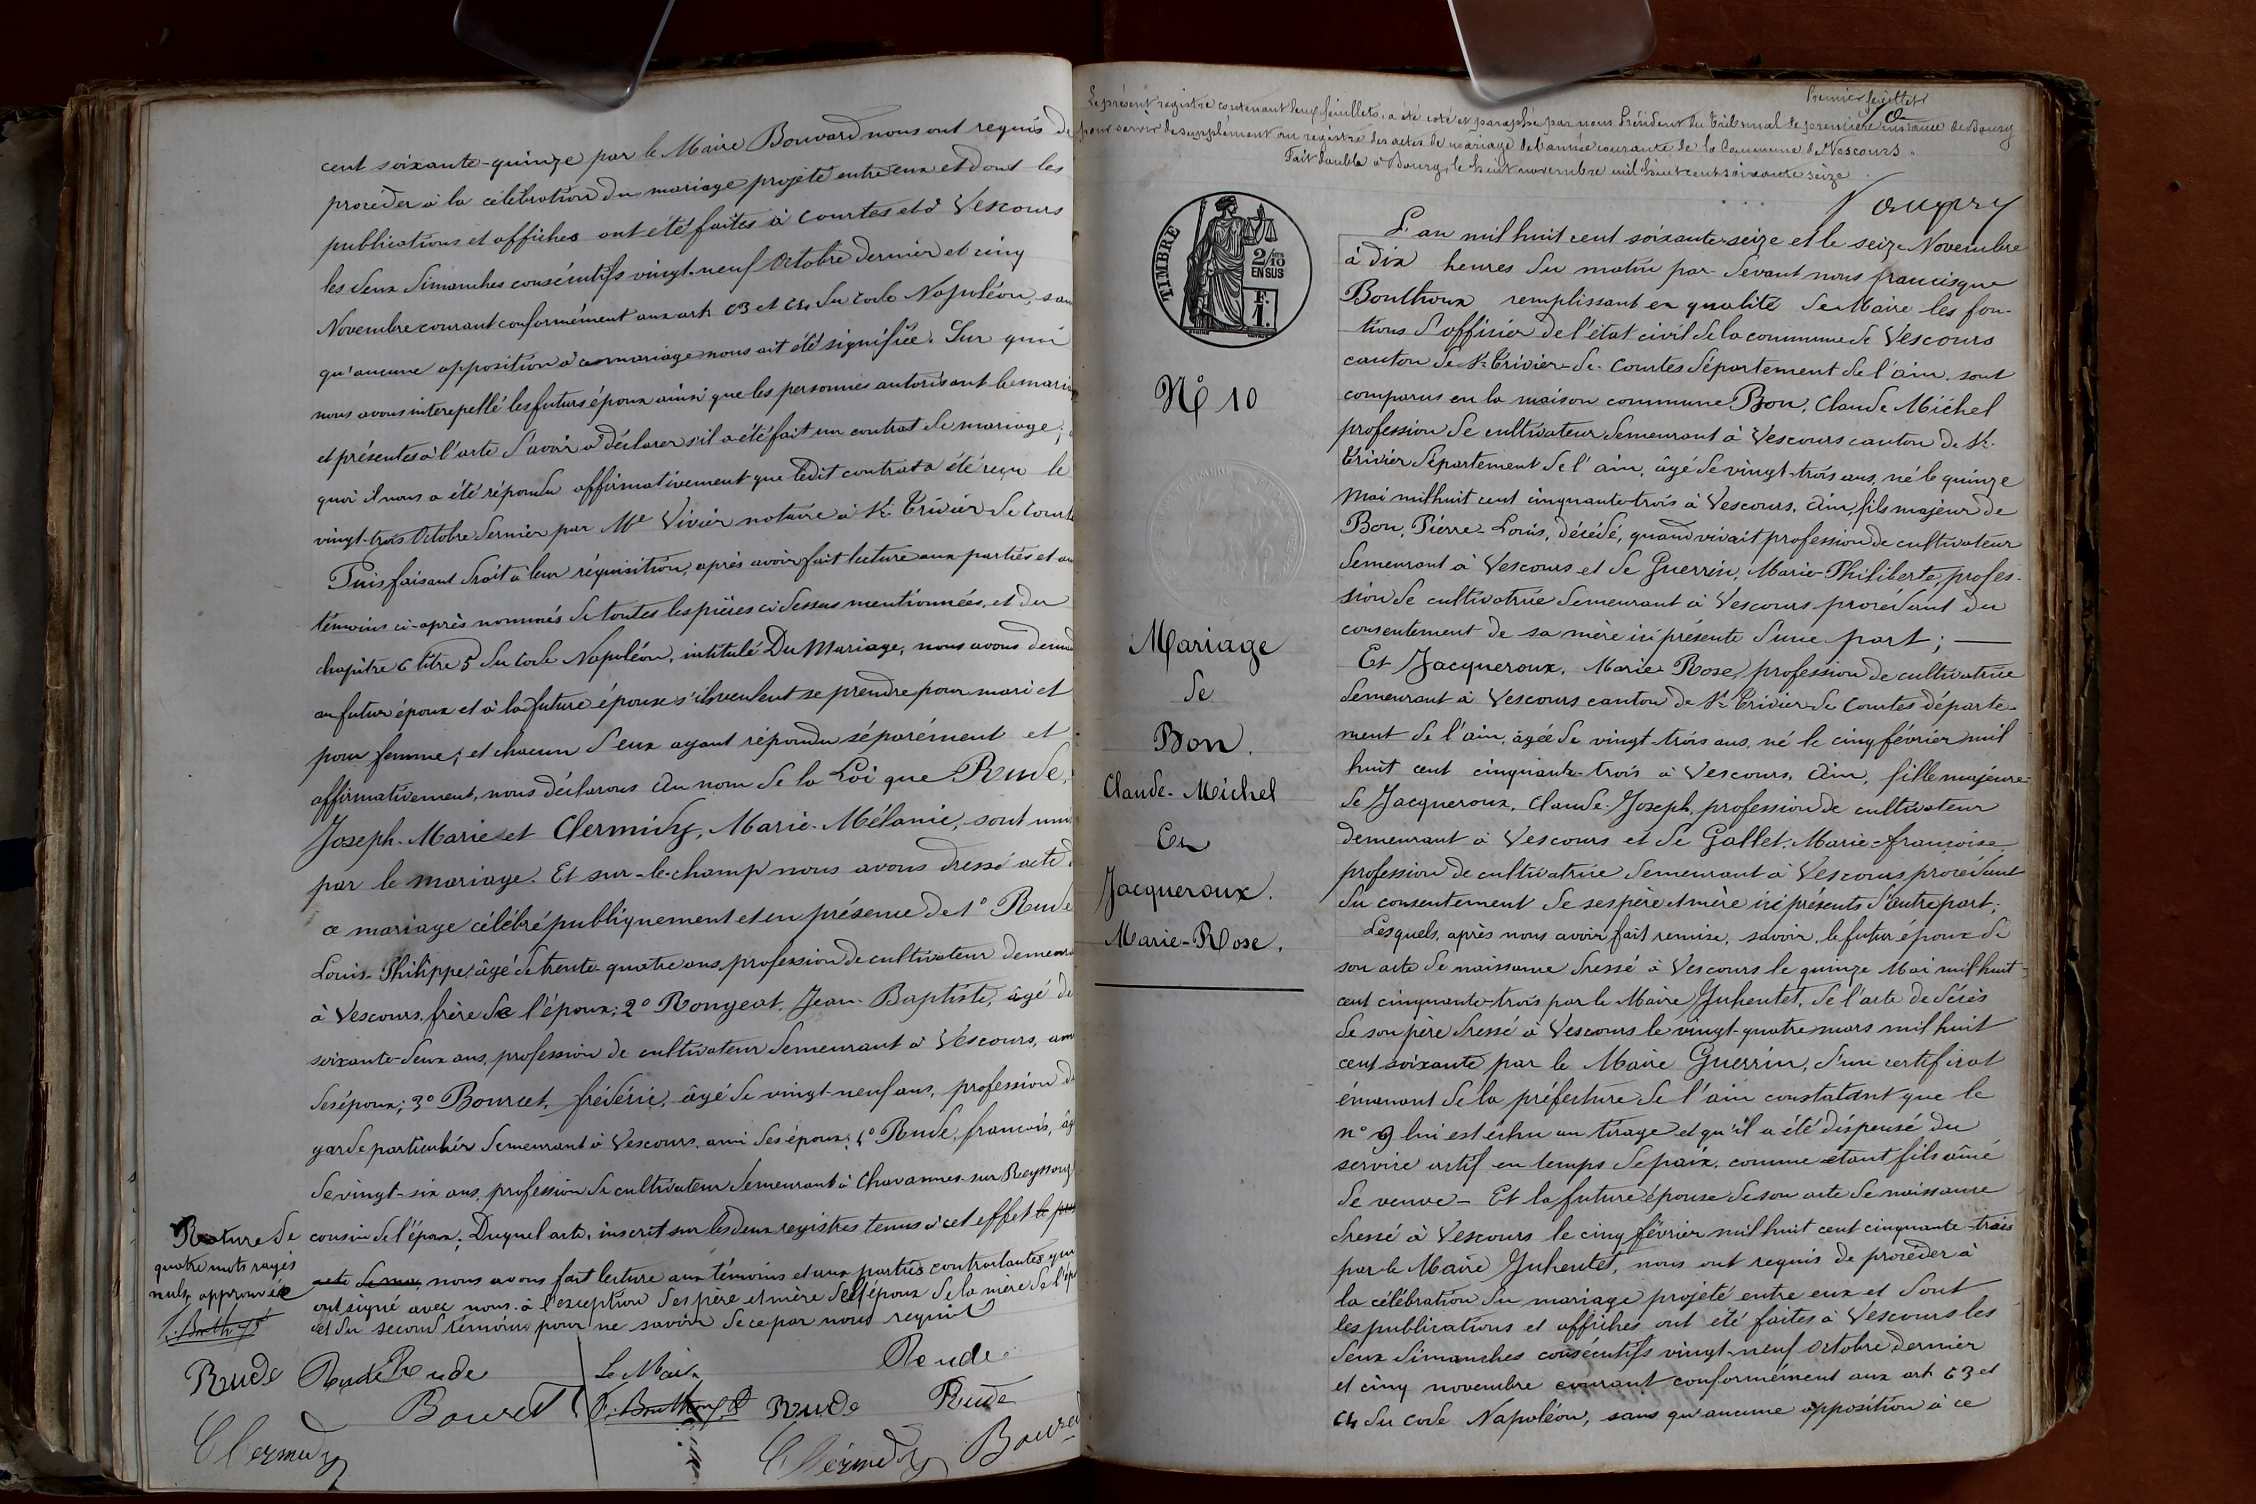 cent soixante-quinze par le Maire Bouvard nous ont requis de
procéder à la célébration du mariage projeté entre eux et dont les
publications et affiches ont été faites à Courtes et à Vescours
les deux dimanches consécutifs vingt-neuf Octobre dernier et cinq
Novembre courant conformément aux art. 63 et 64 du Code Napoléon, sans
qu'aucune opposition à ce mariage nous ait été signifiée. Sur quoi
nous avons interpellé les futurs époux ainsi que les personnes autorisant le mariage
et présentes à l'acte d'avoir à déclarer s'il a été fait un contrat de mariage ; à
quoi il nous a été répondu affirmativement que ledit contrat a été reçu le
vingt-trois Octobre dernier par Me Vivier notaire à St Trivier-de-Courtes
Puis, faisant droit à leur réquisition, après avoir fait lecture aux parties et aux
témoins ci-après nommés de toutes les pièces ci dessus mentionnées, et du
chapitre 6 titre 5 du Code Napoléon, intitulé Du Mariage, nous avons demandé
au futur époux et à la future épouse s'ils veulent se prendre pour mari et
pour femme ; et chacun d'eux ayant répondu séparément et
affirmativement, nous déclarons au nom de la Loi que Rude,
Joseph-Marie et Clermidy, Marie-Mélanie, sont unis
par le mariage. Et sur-le-champ nous avons dressé acte de
ce mariage célébré publiquement et en présence de 1° Rude
Louis-Philippe, âgé de trente-quatre ans, profession de cultivateur demeurant
à Vescours, frère de l'époux ; 2° Rongeat, Jean-Baptiste, âgé de
soixante-deux ans, profession de cultivateur demeurant à Vescours, ami
des époux ; 3° Bourcet, frédéric, âgé de vingt-neuf ans, profession de
garde particulier demeurant à Vescours, ami des époux ; 4° Rude, francois, âgé
de vingt-six ans, profession de cultivateur demeurant à Chavannes-sur-Reyssouze
cousin de l'époux. Duquel acte, inscrit sur les deux registres tenus à cet effet
nous avons fait lecture aux témoins et aux parties contractantes qui
ont signé avec nous à l'exception des père et mère de l'époux de la mère de l'épouse
et du second témoin pour ne savoir de ce par nous requis
Rature de
quatre mots rayés
nuls approuvée
Rude Rude Rude
Bourcet
Clermidy
Le Maire
Rude
Rude
Rude
Clermidy
Bourcet
Premier feuillet
Le présent registre contenant deux feuillets, a été coté et paraphé par nous Président du Tribunal de première instance de Bourg
pour servir de supplément au registre des actes de mariage de l'année courante de la Commune de Vescours.
Fait double à Bourg, le huit novembre mil huit cent soixante seize.
TIMBRE
2/10
EN SUS
F.
1.
N° 10
Mariage
de
Bon.
Claude-Michel
Et
Jacqueroux.
Marie-Rose.
L'an mil huit cent soixante-seize et le seize Novembre
à dix heures du matin par-devant nous francisque
Bouthoux remplissant en qualité de Maire les fon-
tions d'officier de l'état civil de la commune de Vescours
canton de St Trivier-de-Courtes département de l'ain, sont
comparus en la maison commune Bon, Claude Michel
profession de cultivateur demeurant à Vescours canton de St.
Trivier département de l'ain, âgé de vingt-trois ans, né le quinze
Mai mil huit cent cinquante-trois à Vescours, ain, fils majeur de
Bon, Pierre-Louis, décédé, quand vivait profession de cultivateur
demeurant à Vescours et de Guerrin, Marie-Philiberte, profes-
sion de cultivatrice demeurant à Vescours procédant du
consentement de sa mère ici présente d'une part ;
Et Jacqueroux, Marie-Rose, profession de cultivatrice
demeurant à Vescours canton de St Trivier-de-Courtes départe-
ment de l'ain, âgée de vingt trois ans, né le cinq février mil
huit cent cinquante-trois à Vescours, Ain, fille majeure
de Jacqueroux, Claude-Joseph, profession de cultivateur
demeurant à Vescours et de Gallet, Marie-francoise
profession de cultivatrice demeurant à Vescours, procédant
du consentement de ses père et mère ici présents d'autre part ;
Lesquels, après nous avoir fait remise, savoir, le futur époux de
son acte de naissance dressé à Vescours le quinze Mai mil huit-
cent cinquante-trois par le Maire Juhentet, de l'acte de décès
de son père dressé à Vescours le vingt-quatre mars mil huit
cent soixante par le Maire Guerrin, d'un certificat
émanant de la préfecture de l'ain constatant que le
n° 9 lui est échu au tirage et qu'il a été dispensé du
service actif en temps de paix, comme étant fils aîné
de veuve - Et la future épouse de son acte de naissance
dressé à Vescours le cinq février mil huit cent cinquante-trois
par le Maire Juhentet, nous ont requis de procéder à
la célébration du mariage projeté entre eux et dont
les publications et affiches ont été faites à Vescours les
deux dimanches consécutifs vingt-neuf Octobre dernier
et cinq novembre courant conformément aux art. 63 et
64 du Code Napoléon, sans qu'aucune opposition à ce